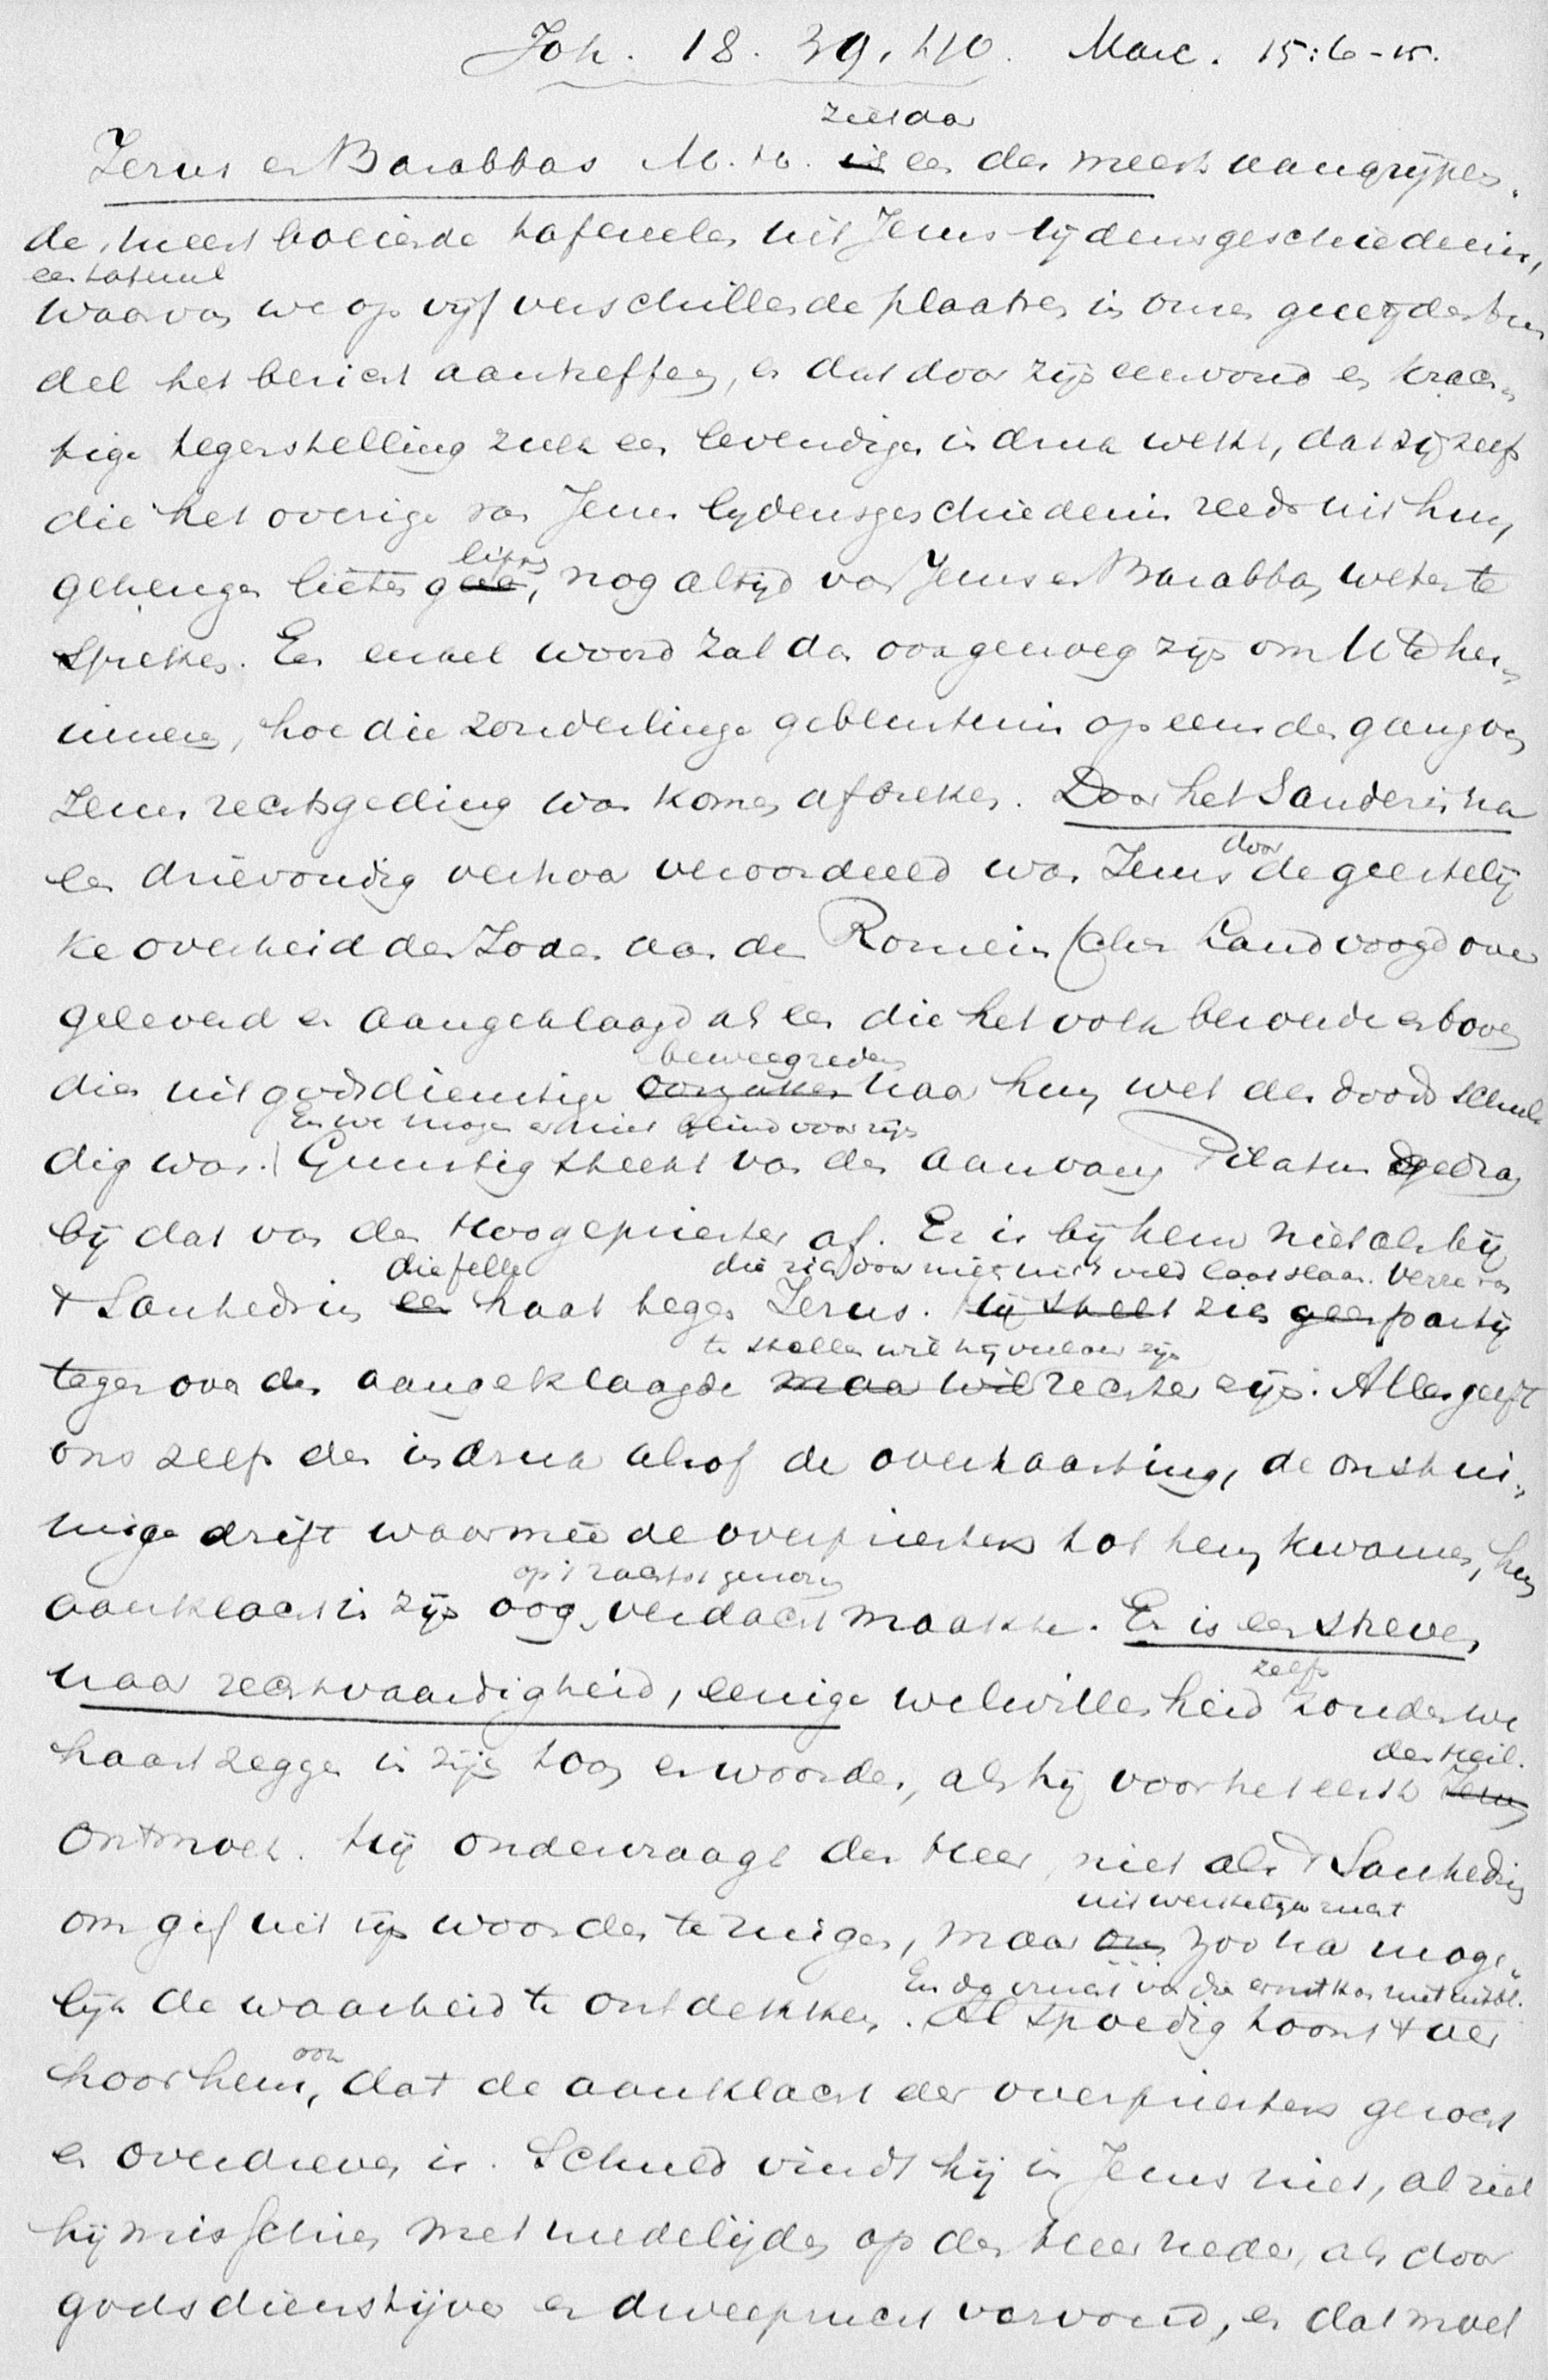 Joh. 18. 39, 40. Marc. 15:6-15.
ziet daar
Jezus en Barabbas M. H. is een der meest aangrijpen-
de, meest boeiende tafereelen uit Jezus lijdensgeschiedenis,
een tafereel
waarvan we op vijf verschillende plaatsen in onzen gewijden bun
del het bericht aantreffen, en dat door zijn eenvoud en krach-
tige tegenstelling zulk een levendigen indruk wekt, dat zij zelfs
die het overige van Jezus lijdensgeschiedenis reeds uit hun
lippen
geheugen lieten gaan, nog altijd van Jezus en Barabbas weten te
spreken. Een enkel woord zal dan ook genoeg zijn om U te her-
inneren, hoe die zonderlinge gebeurtenis opeens den gang van
Jezus rechtsgeding was komen afbreken. Door het Sanhedrin na
door
een drievoudig verhoor veroordeeld was Jezus de geestelij
ke overheid der Joden aan den Romeinschen Landvoogd over
geleverd en aangeklaagd als een die het volk beroerde en boven
beweegreden
dien uit godsdienstige oorzaken naar hun wet des doods schul
En we mogen er niet blind voor zijn
dig was. Gunstig steekt van den aanvang Pilatus gedrag
bij dat van den Hoogepriester af. Er is bij hem niet als bij
die felle die zich door niets uit 't veld laat slaan. Verre van
't Sanhedrin een haat tegen Jezus. Hij stelt zich geen partij
te stellen wil hij veeleer zijn
tegenover den aangeklaagde maar wil rechter zijn. Alles geeft
ons zelfs den indruk alsof de overhaasting, de onstui-
mige drift waarmeê de overpriesters tot hem kwamen, hun
op 't zachtst genomen
aanklacht in zijn oog verdacht maakte. Er is een streven
zelfs
naar rechtvaardigheid, eenige welwillendheid zouden we
den Heil.
haast zeggen in zijn toon en woorden, als hij voor het eerst Jezus
ontmoet. Hij ondervraagt den Heer, niet als 't Sanhedrin
uit werkelijke zucht
om gif uit zijn woorden te zuigen, maar om zoo na moge-
En de vrucht van die ernst kan niet uitbl.
lijk de waarheid te ontdekken. Al spoedig toont 't ver
ook
hoor hem, dat de aanklacht der overpriesters gezocht
en overdreven is. Schuld vindt hij in Jezus niet, al ziet
hij misschien met medelijden op den Heer neder, als door
godsdienstijver en dweepzucht verward, en dat moet